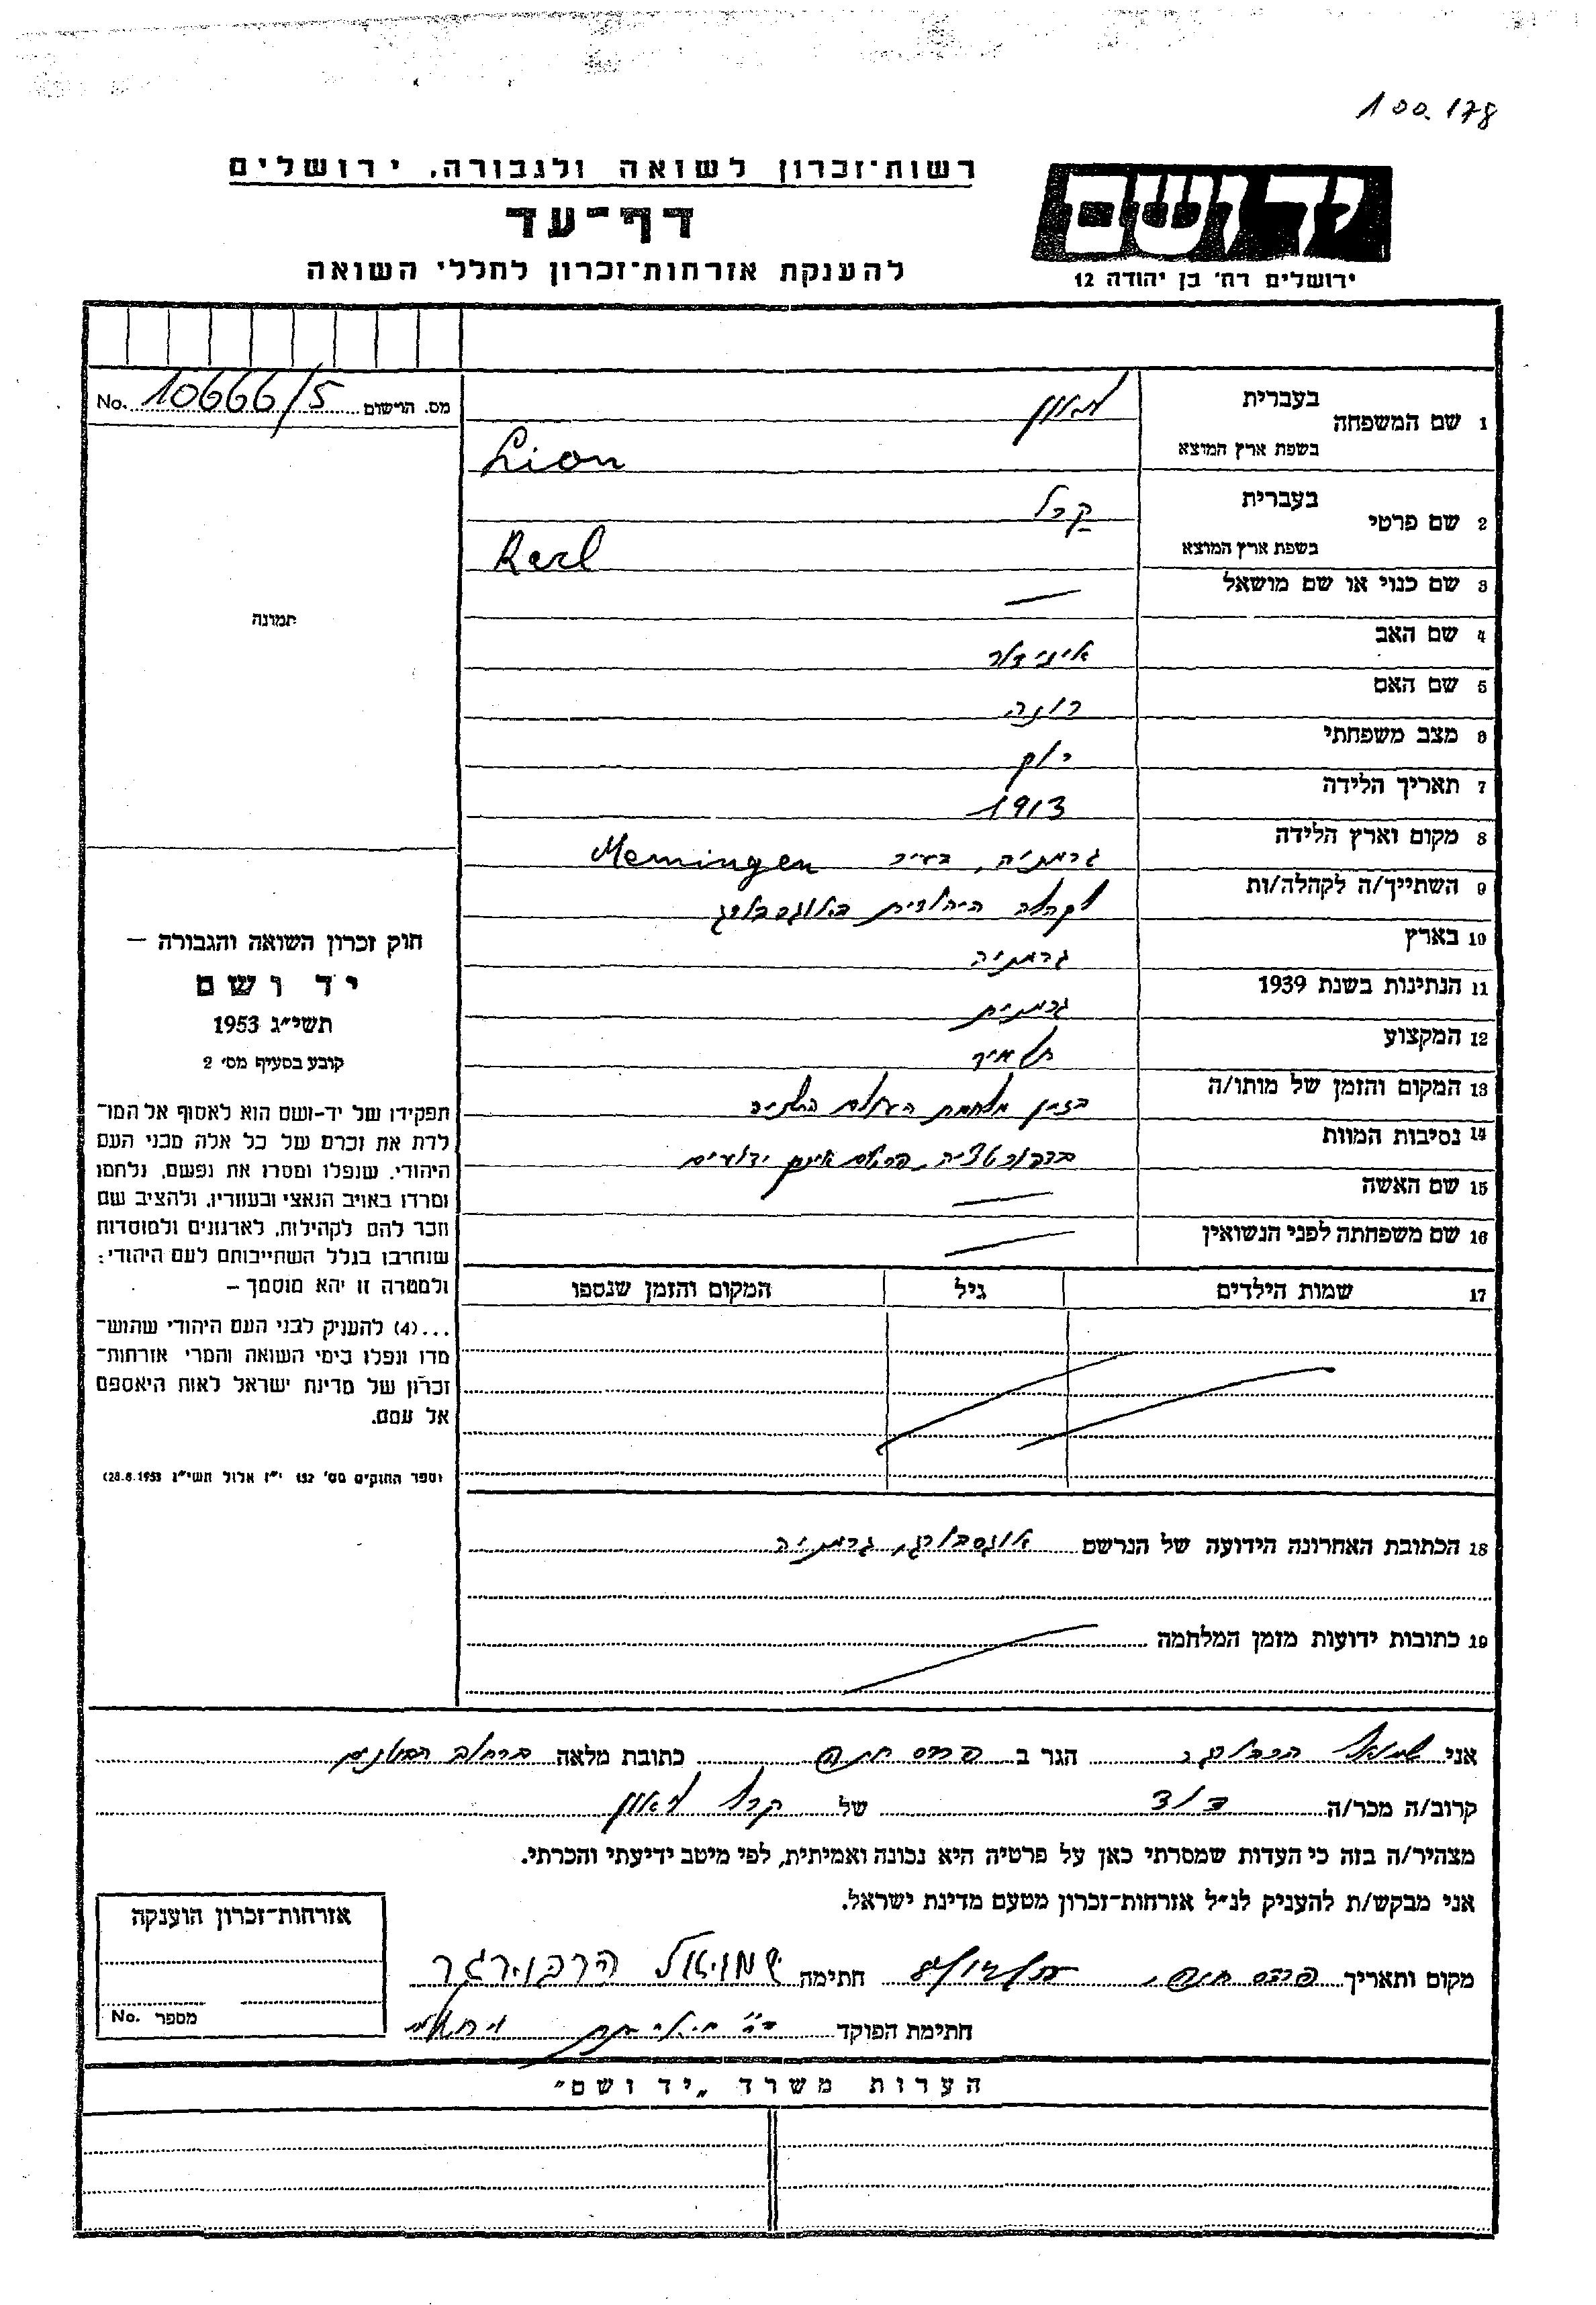 100.178
רשות־זכרון לשואה ולגבורה, ירושלים
יד ושם
דף־עד
להענקת אזרחות־זכרון לחללי השואה
ירושלים רח' בן יהודה 12
מס. הרישום 10666/5 No.
1 שם המשפחה
בעברית ליאון
בשפת ארץ המוצא Lion
2 שם פרטי
בעברית קרל
בשפת ארץ המוצא Karl
3 שם כנוי או שם מושאל —
תמונה
4 שם האב איזידור
5 שם האם
6 מצב משפחתי רוק
7 תאריך הלידה 1913
8 מקום וארץ הלידה גרמניה, בעיר Memingen
9 השתייך/ה לקהלה/ות לקהלה היהודית באוגסבורג
10 בארץ גרמניה
11 הנתינות בשנת 1939 גרמנית
12 המקצוע תלמיד
13 המקום והזמן של מותו/ה בזמן מלחמת העולם השניה
14 נסיבות המוות בדפורטציה, פרטים אינם ידועים
15 שם האשה —
16 שם משפחתה לפני הנשואין —
חוק זכרון השואה והגבורה —
יד ושם
תשי״ג 1953
קובע בסעיף מס' 2
תפקידו של יד-ושם הוא לאסוף אל המו־
לדת את זכרם של כל אלה מבני העם
היהודי, שנפלו ומסרו את נפשם, נלחמו
ומרדו באויב הנאצי ובעוזריו, ולהציב שם
וזכר להם לקהילות, לארגונים ולמוסדות
שנחרבו בגלל השתייכותם לעם היהודי:
ולמטרה זו יהא מוסמך –
...(4) להעניק לבני העם היהודי שהוש־
מדו ונפלו בימי השואה והמרי אזרחות־
זכרון של מדינת ישראל לאות היאספם
אל עמם.
(ספר החוקים מס' 132 י״ז אלול תשי״ג 28.8.1953)
17 שמות הילדים גיל המקום והזמן שנספו
18 הכתובת האחרונה הידועה של הנרשם אוגסבורג, גרמניה
19 כתובות ידועות מזמן המלחמה
אני שמואל הרבורגר הגר ב פרדס חנה כתובת מלאה ברחוב הבוטנים
קרוב/ה מכר/ה דוד של קרל ליאון
מצהיר/ה בזה כי העדות שמסרתי כאן על פרטיה היא נכונה ואמיתית, לפי מיטב ידיעתי והכרתי.
אני מבקש/ת להעניק לנ״ל אזרחות־זכרון מטעם מדינת ישראל.
מקום ותאריך פרדס חנה, חתימה שמואל הרבורגר
חתימת הפוקד
אזרחות־זכרון הוענקה
מספר No.
הערות משרד „יד ושם״